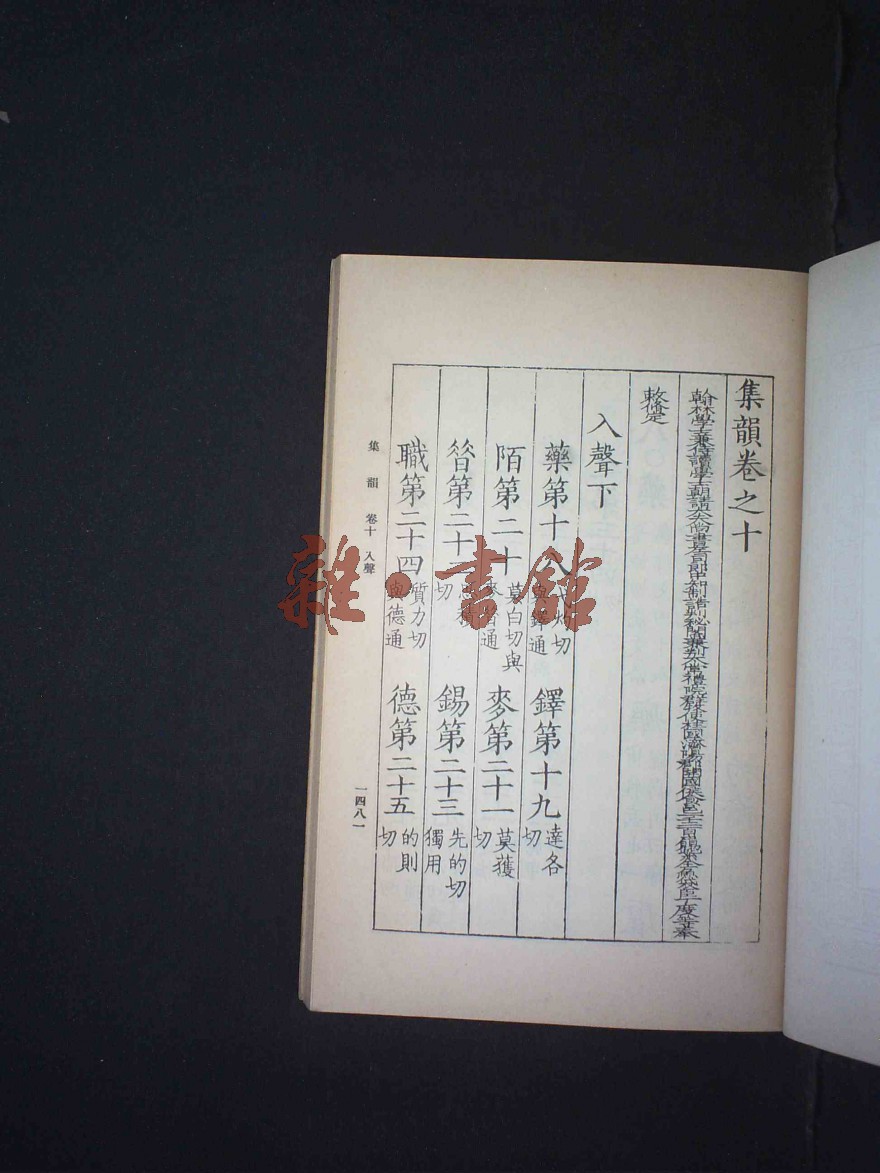 集韻卷之十
翰林學士兼侍讀學士朝請大夫尚書左司郎中知制誥判秘閣兼判太常禮院群牧使柱國濟陽郡開國侯食邑一千二百戶賜紫金魚袋臣丁度等奉
敕脩定
入聲下
藥第十八 弋灼切與鐸通 鐸第十九 達各切
陌第二十 莫白切與麥昔通 麥第二十一 莫獲切
㫺第二十二 思積切 錫第二十三 先的切獨用
職第二十四 質力切與德通 德第二十五 的則切
集韻 卷十 入聲
一四八一
雜·書館